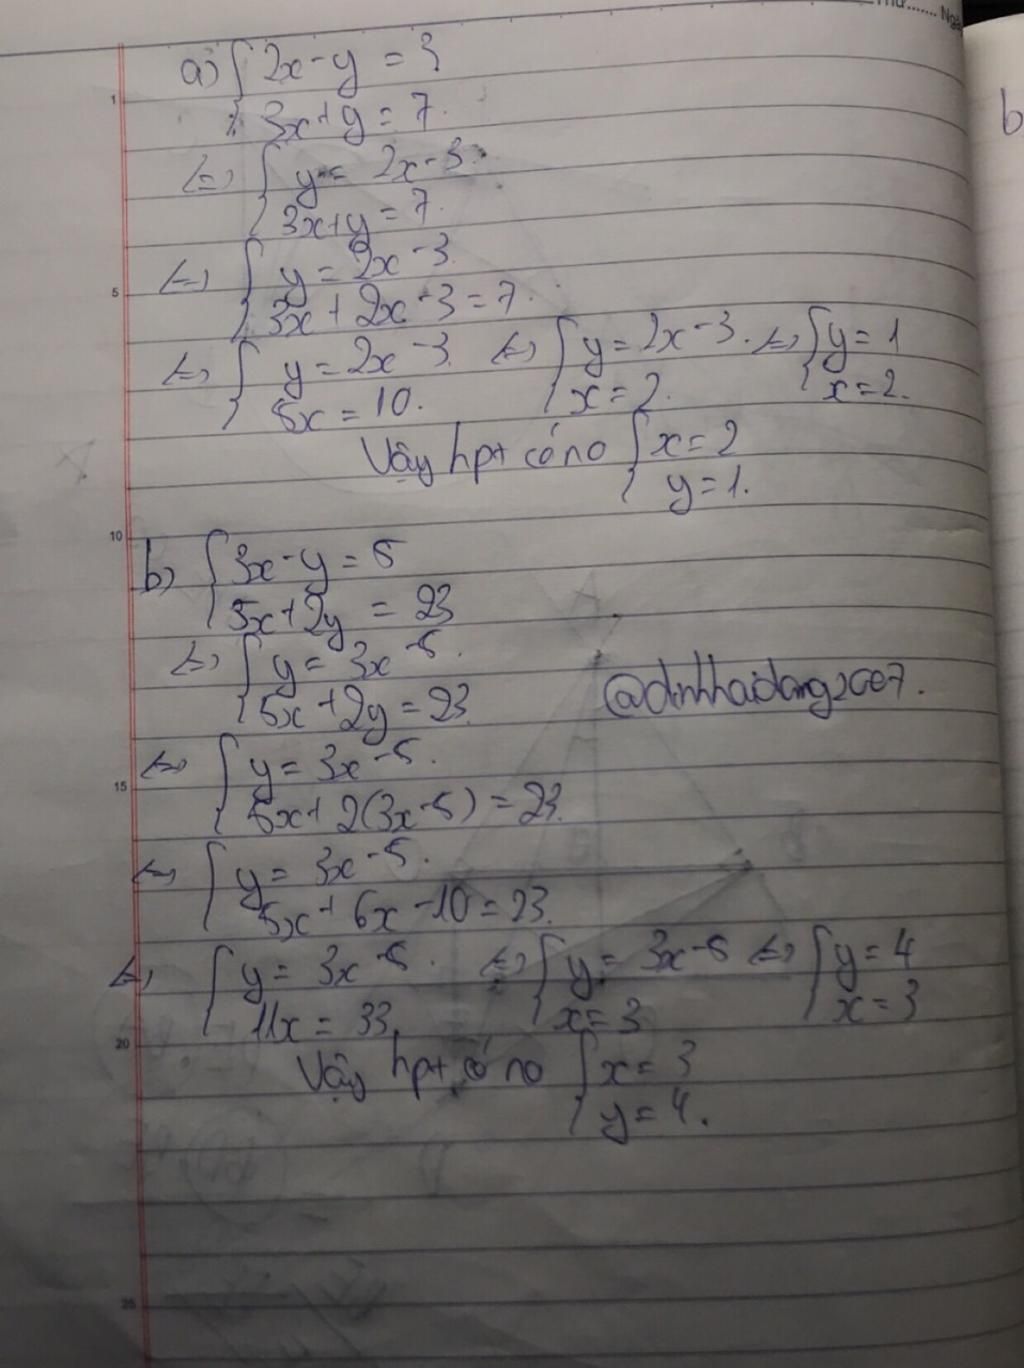 a) { 2x - y = 3
3x + y = 7.
<=> { y = 2x - 3.
3x + y = 7.
<=> { y = 2x - 3.
3x + 2x - 3 = 7.
<=> { y = 2x - 3. <=> { y = 2x - 3. <=> { y = 1
5x = 10. x = 2. x = 2.
Vậy hpt có no { x = 2
y = 1.
b) { 3x - y = 5
5x + 2y = 23
<=> { y = 3x - 5.
5x + 2y = 23.
@dinhhaidang2007.
<=> { y = 3x - 5.
5x + 2(3x - 5) = 23.
<=> { y = 3x - 5.
5x + 6x - 10 = 23.
<=> { y = 3x - 5. <=> { y = 3x - 5 <=> { y = 4
11x = 33. x = 3 x = 3
Vậy hpt có no { x = 3
y = 4.
b
1
5
10
15
20
25